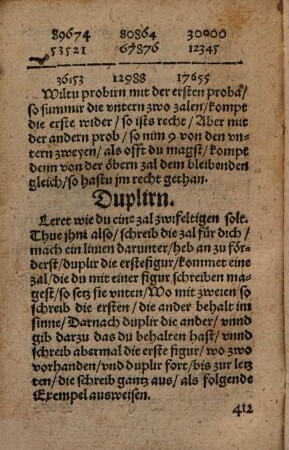 89674 80864 30000
53521 67876 12345
36153 12988 17655
Wiltu probirn mit der ersten proba/
so summir die vntern zwo zalen/kompt
die erste wider/ so ists recht/ Aber mit
der andern prob/ so nim 9 von den vn-
tern zweyen/ als offt du magst/ kompt
denn von der öbern zal dem bleibenden
gleich/so hastu jm recht gethan.
Duplirn.
Leret wie du eine zal zwifeltigen solt.
Thue jhm also/ schreib die zal für dich/
mach ein linien darunter/ heb an zu för-
derst/ duplir die erste figur/kommet eine
zal/ die du mit einer figur schreiben ma-
gest/ so setz sie vnten/ Wo mit zweien so
schreib die ersten/ die ander behalt im
sinne/ Darnach duplir die ander/ vnnd
gib darzu das du behalten hast/ vnnd
schreib abermal die erste figur/ wo zwo
vorhanden/vnd duplir fort/bis zur letz
ten/die schreib gantz aus/ als folgende
Exempel ausweisen.
412